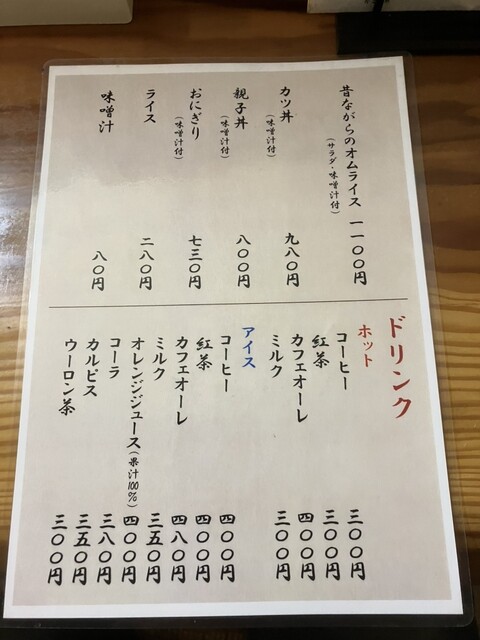 昔ながらのオムライス 一一〇〇円
(サラダ・味噌汁付)
カツ丼 九八〇円
(味噌汁付)
親子丼 八〇〇円
(味噌汁付)
おにぎり 七三〇円
(味噌汁付)
ライス 二八〇円
味噌汁 八〇円
ドリンク
ホット
コーヒー 三〇〇円
紅茶 三〇〇円
カフェオーレ 四〇〇円
ミルク 三〇〇円
アイス
コーヒー 四〇〇円
紅茶 四〇〇円
カフェオーレ 四八〇円
ミルク 三五〇円
オレンジジュース(果汁100%) 四〇〇円
コーラ 三八〇円
カルピス 三五〇円
ウーロン茶 三〇〇円